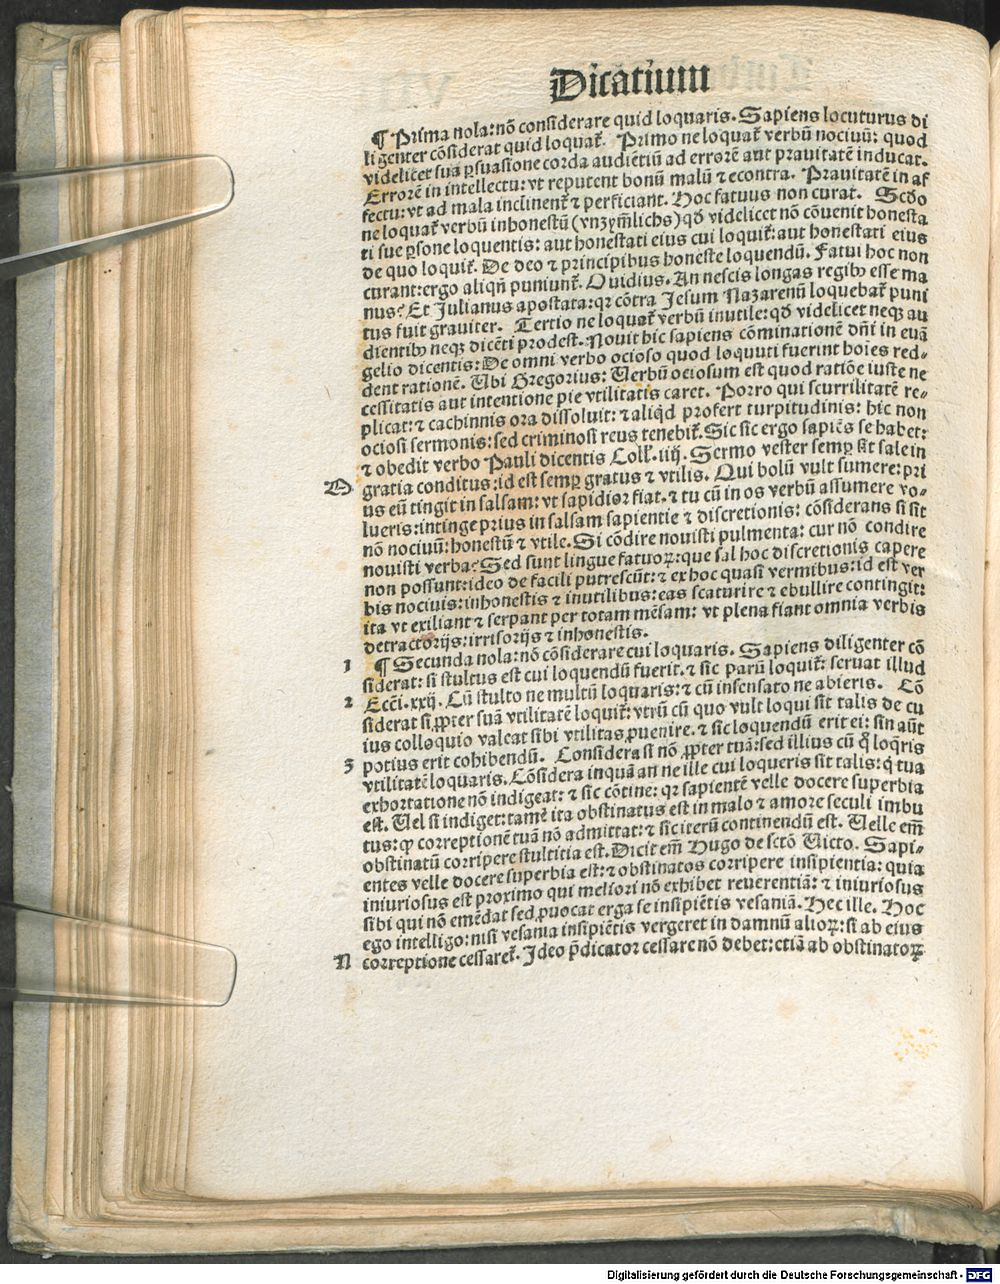 Dicatium
¶ Prima nola: nō considerare quid loquaris. Sapiens locuturus di
ligenter cōsiderat quid loquat̄. Primo ne loquat̄ verbū nociuū: quod
videlicet sua ꝑsuasione corda audiētiū ad errorē aut prauitatē inducat.
Errorē in intellectu: vt reputent bonū malū ⁊ econtra. Prauitatē in af
fectu: vt ad mala inclinent̄ ⁊ perficiant. Hoc fatuus non curat. Scd̄o
ne loquat̄ verbū inhonestū (vnzym̄lichs) qd̄ videlicet nō cōuenit honesta
ti sue ꝑsone loquentis: aut honestati eius cui loquit̄: aut honestati eius
de quo loquit̄. De deo ⁊ principibus honeste loquendū. Fatui hoc non
curant: ergo aliqn̄ puniunt̄. Ouidius. An nescis longas regibꝫ esse ma
nus? Et Julianus apostata: qꝛ cōtra Jesum Nazarenū loquebat̄ puni
tus fuit grauiter. Tertio ne loquat̄ verbū inutile: qd̄ videlicet neqꝫ au
dientibꝫ neqꝫ dicēti prodest. Nouit hic sapiens cōminationē dn̄i in euā
gelio dicentis: De omni verbo ocioso quod loquuti fuerint hoīes red-
dent rationē. Ubi Gregorius: Uerbū ociosum est quod ratiōe iuste ne
cessitatis aut intentione pie vtilitatis caret. Porro qui scurrilitatē re-
plicat: ⁊ cachinnis ora dissoluit: ⁊ aliqd̄ profert turpitudinis: hic non
ociosi sermonis: sed criminosi reus tenebit̄. Sic sic ergo sapiēs se habet:
⁊ obedit verbo Pauli dicentis Coll̄. iiij. Sermo vester semꝑ sit sale in
O gratia conditus: id est semꝑ gratus ⁊ vtilis. Qui bolū vult sumere: pri
us eū tingit in salsam: vt sapidior fiat. ⁊ tu cū in os verbū assumere vo-
lueris: intinge prius in salsam sapientie ⁊ discretionis: cōsiderans si sit
nō nociuū: honestū ⁊ vtile. Si cōdire nouisti pulmenta: cur nō condire
nouisti verba? Sed sunt lingue fatuoꝝ: que sal hoc discretionis capere
non possunt: ideo de facili putrescūt: ⁊ ex hoc quasi vermibus: id est ver
bis nociuis: inhonestis ⁊ inutilibus: eas scaturire ⁊ ebullire contingit:
ita vt exiliant ⁊ serpant per totam mēsam: vt plena fiant omnia verbis
detractorijs: irrisorijs ⁊ inhonestis.
1 ¶ Secunda nola: nō cōsiderare cui loquaris. Sapiens diligenter cō
siderat: si stultus est cui loquendū fuerit. ⁊ sic parū loquit̄: seruat illud
2 Ecci̅. xxij. Cū stulto ne multū loquaris: ⁊ cū insensato ne abieris. Cō
siderat si ꝓpter suā vtilitatē loquit̄: vtrū cū quo vult loqui sit talis de cu
ius colloquio valeat sibi vtilitas ꝓuenire. ⁊ sic loquendū erit ei: sin aūt
3 potius erit cohibendū. Considera si nō ꝓpter tuā: sed illius cū q̊ loq̄ris
vtilitatē loquaris. Cōsidera inquā an ne ille cui loqueris sit talis: q̇ tua
exhortatione nō indigeat: ⁊ sic cōtine: qꝛ sapientē velle docere superbia
est. Uel si indiget: tamē ita obstinatus est in malo ⁊ amore seculi imbu
tus: ꝙ correptionē tuā nō admittat: ⁊ sic iterū continendū est. Uelle em̄
obstinatū corripere stultitia est. Dicit em̄ Hugo de sctō Uicto. Sapi-
entes velle docere superbia est: ⁊ obstinatos corripere insipientia: quia
iniuriosus est proximo qui meliori nō exhibet reuerentiā: ⁊ iniuriosus
sibi qui nō emēdat sed ꝓuocat erga se insipiētis vesaniā. Hec ille. Hoc
ego intelligo: nisi vesania insipiētis vergeret in damnū alioꝝ: si ab eius
N correptione cessaret̄. Ideo p̄dicator cessare nō debet: etiā ab obstinatoꝝ
Digitalisierung gefördert durch die Deutsche Forschungsgemeinschaft - DFG